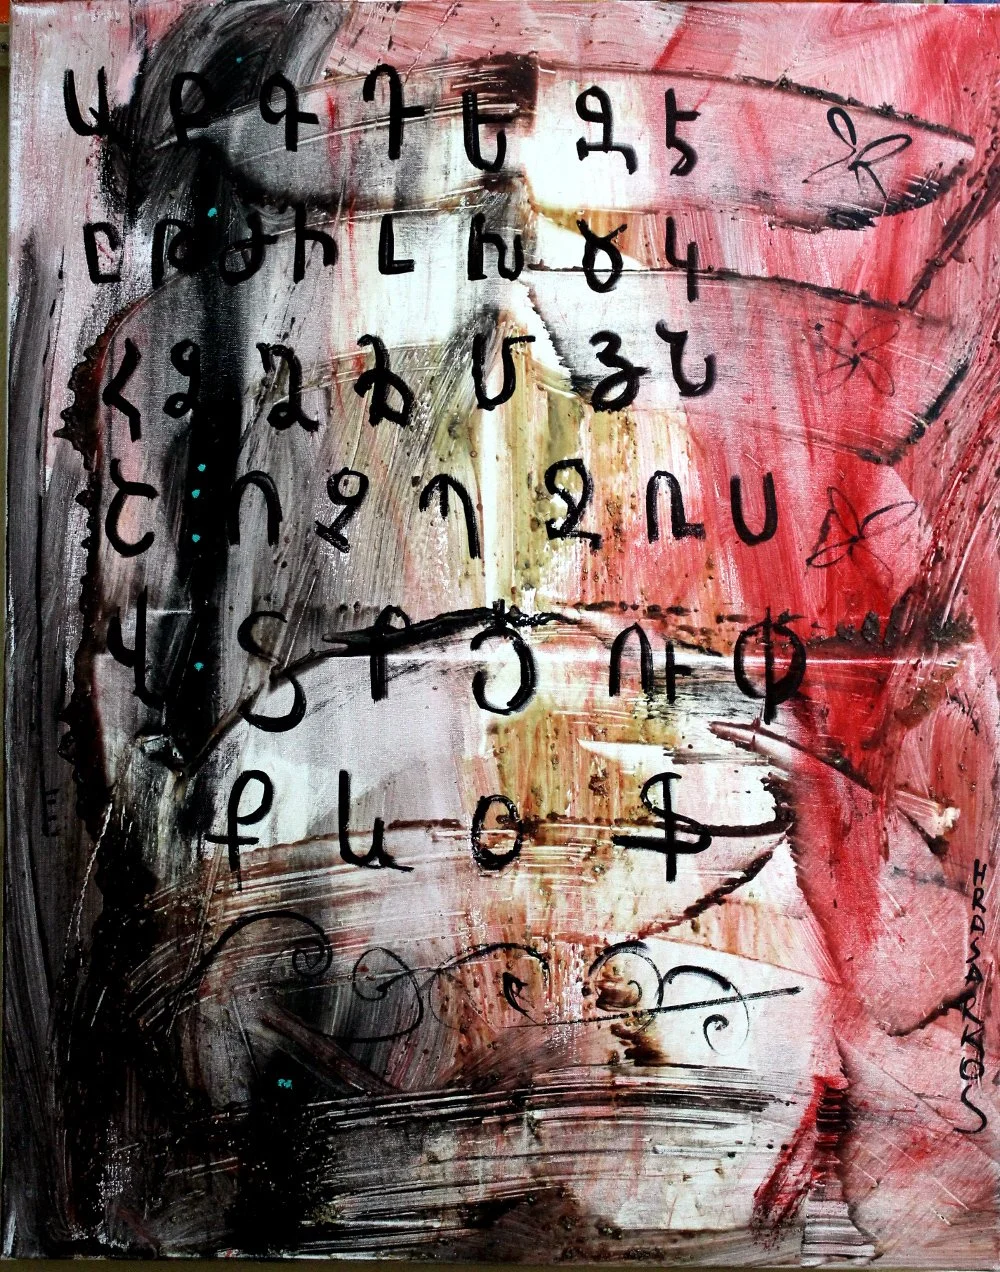 Ա Բ Գ Դ Ե Զ Է
Ը Թ Ժ Ի Լ Խ Ծ Կ
Հ Ձ Ղ Ճ Մ Յ Ն
Շ Ո Չ Պ Ջ Ռ Ս
Վ Տ Ր Ց Ու Փ
Ք և Օ Ֆ